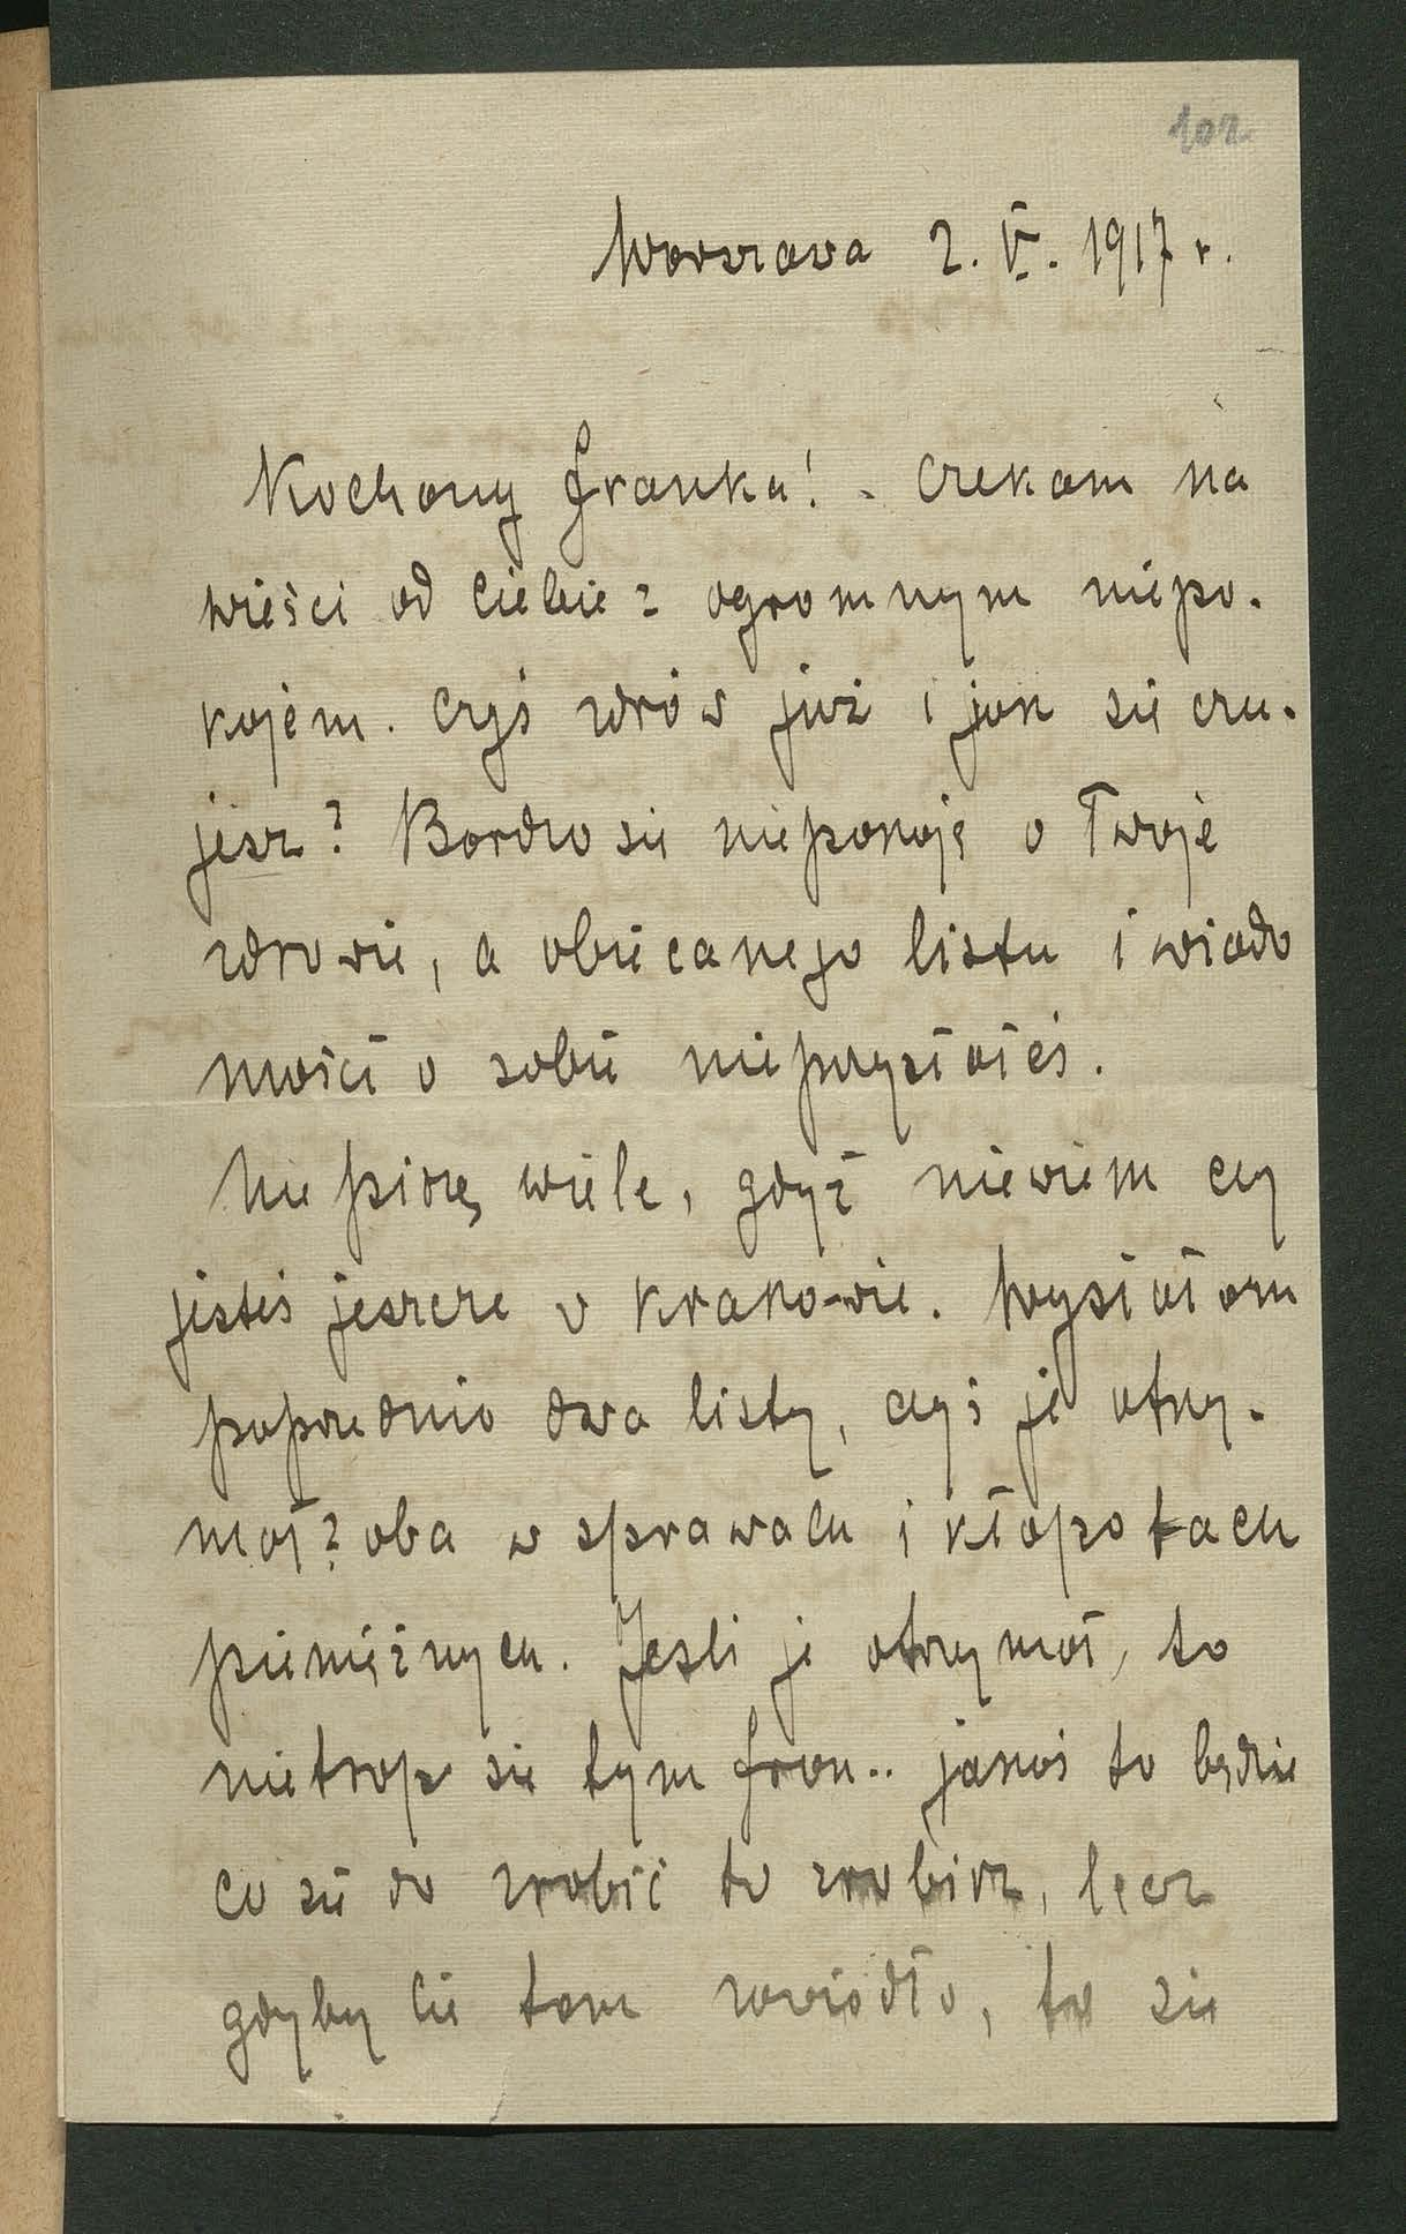 102
Warszawa 2. V. 1917 r.
Kochany Franku! - Czekam na
wieści od Ciebie z ogromnym niepo-
kojem. Czyś zdrów już i jak się czu-
jesz? Bardzo się niepokoję o Twoje
zdrowie, a obiecanego listu i wiado
mości o sobie nieprzysłałeś.
Nie piszę wiele, gdyż niewiem czy
jesteś jeszcze w Krakowie. Wysłałam
poprzednio dwa listy, czyś je otrzy-
mał? oba w sprawach i kłopotach
pieniężnych. Jeśli je otrzymał, to
nietrap się tym Fran.. jakoś to będzie
co się da zrobić to zrobisz, lecz
gdyby Cie tam zawiodło, to się